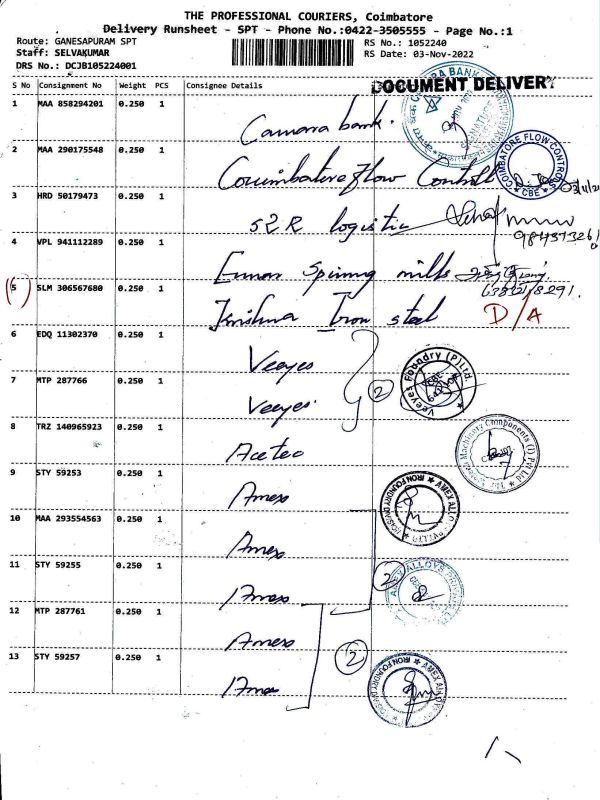 THE PROFESSIONAL COURIERS, Coimbatore
Delivery Runsheet - SPT - Phone No.:0422-3505555 - Page No.:1
Route: GANESAPURAM SPT
RS No.: 1052240
Staff: SELVAKUMAR
RS Date: 03-Nov-2022
DRS No.: DCJB105224001
DOCUMENT DELIVERY
S No Consignment No Weight PCS Consignee Details
1 MAA 858294201 0.250 1
Canara bank.
2 MAA 290175548 0.250 1
Coimbatore Flow Controls
COIMBATORE FLOW CONTROLS
CBE
3 HRD 50179473 0.250 1
S2R logistic
4 VPL 941112289 0.250 1
Spinning mills
(5) SLM 306567680 0.250 1
Krishna Iron steel D/A
6 EDQ 11302370 0.250 1
Veeyes
7 MTP 287766 0.250 1
Veeyes
2
Veeyes Foundry (P) Ltd.
8 TRZ 140965923 0.250 1
Acetec
Machinery Components (I) Pvt Ltd
9 STY 59253 0.250 1
Amex
10 MAA 293554563 0.250 1
Amex
11 STY 59255 0.250 1
Amex
2
12 MTP 287761 0.250 1
Amex
2
13 STY 59257 0.250 1
Amex